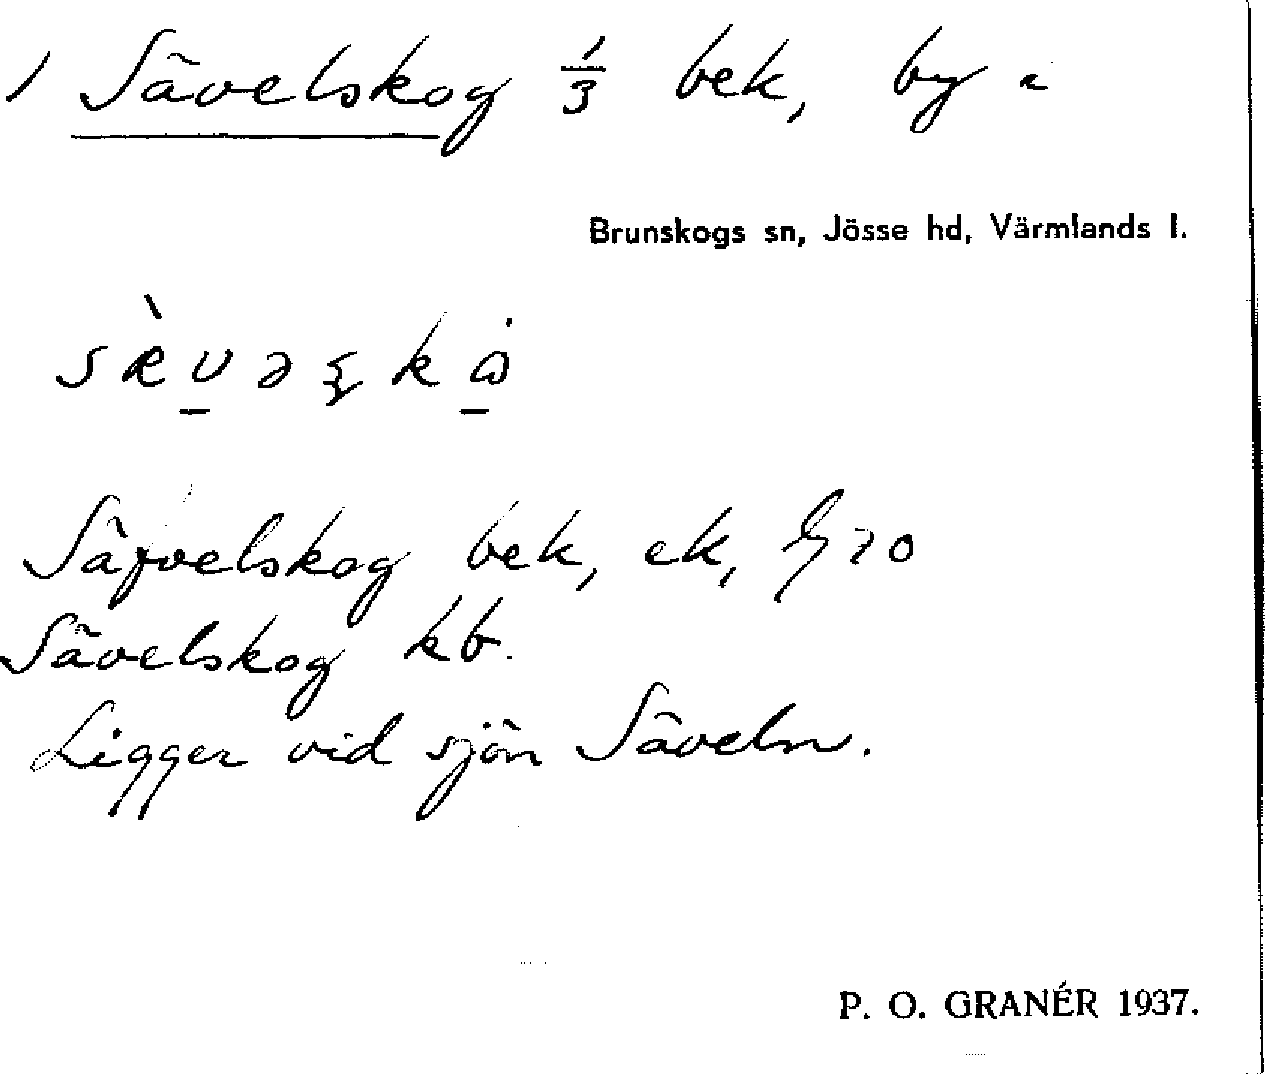 1 Sävelskog 1/3 bek, by
Brunskogs sn, Jösse hd, Värmlands l.
Säfvelskog bek, ek,
Sävelskog kb.
Ligger vid sjön Säveln.
P. O. GRANÉR 1937.